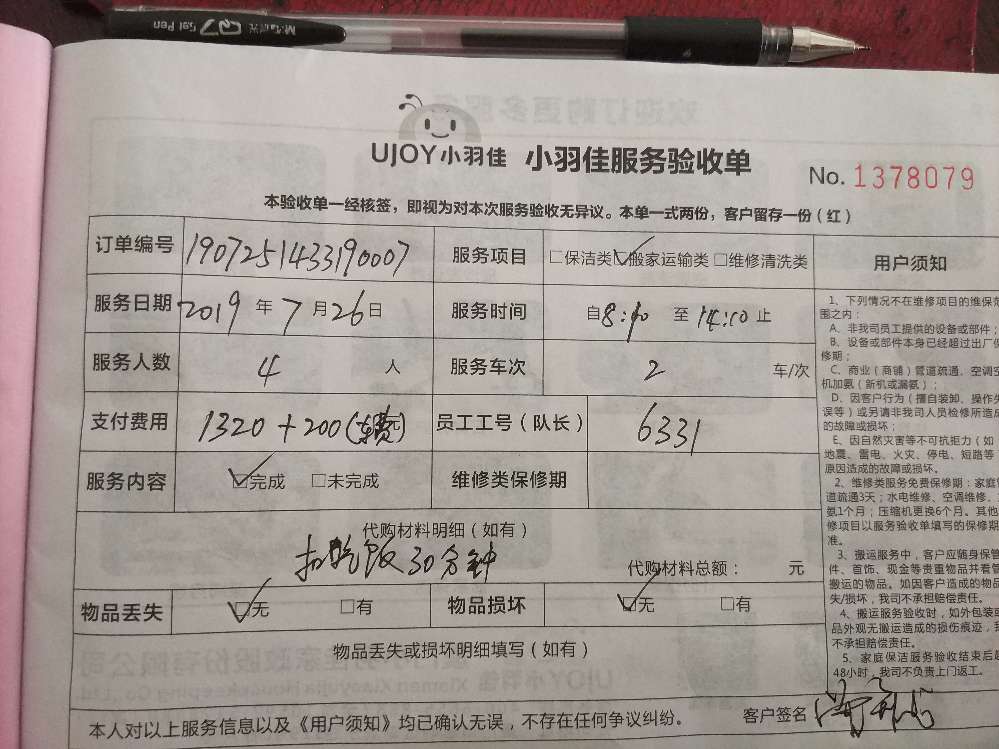 M&G晨光 Q7 Gel Pen
UJOY小羽佳 小羽佳服务验收单
No. 1378079
本验收单一经核签，即视为对本次服务验收无异议。本单一式两份，客户留存一份（红）
订单编号 1907251433190007 服务项目 □保洁类 ☑搬家运输类 □维修清洗类
服务日期 2019 年 7 月 26 日 服务时间 自 8:40 至 14:10 止
服务人数 4 人 服务车次 2 车/次
支付费用 1320+200(车费) 元 员工工号（队长） 6331
服务内容 ☑完成 □未完成 维修类保修期
代购材料明细（如有）
扣吃饭30分钟
代购材料总额： 元
物品丢失 ☑无 □有 物品损坏 ☑无 □有
物品丢失或损坏明细填写（如有）
本人对以上服务信息以及《用户须知》均已确认无误，不存在任何争议纠纷。
客户签名
用户须知
1、下列情况不在维修项目的维保范
围之内：
A、非我司员工提供的设备或部件；
B、设备或部件本身已经超过出厂保
修期；
C、商业（商铺）管道疏通、空调空
机加氨（新机或漏氨）；
D、因客户行为（擅自装卸、操作失
误等）或另请非我司人员检修所造成
的故障或损坏；
E、因自然灾害等不可抗拒力（如
地震、雷电、火灾、停电、短路等
原因造成的故障或损坏。
2、维修类服务免费保修期：家庭管
道疏通3天；水电维修、空调维修、
氨1个月；压缩机更换6个月。其他
修项目以服务验收单填写的保修期
准。
3、搬运服务中，客户应随身保管
件、首饰、现金等贵重物品并看管
搬运的物品。如因客户造成的物品
失/损坏，我司不承担赔偿责任。
4、搬运服务验收时，如外包装或
品外观无搬运造成的损伤痕迹，我
不承担赔偿责任。
5、家庭保洁服务验收结束后超
48小时，我司不负责上门返工。